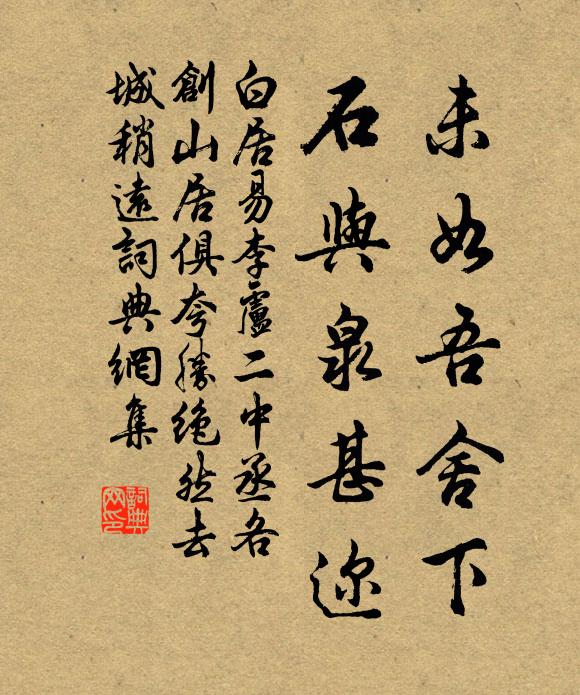 未如吾舍下
石與泉甚邇
白居易李盧二中丞各
創山居俱夸勝絶然去
城稍遠詞典網集
詞典網印